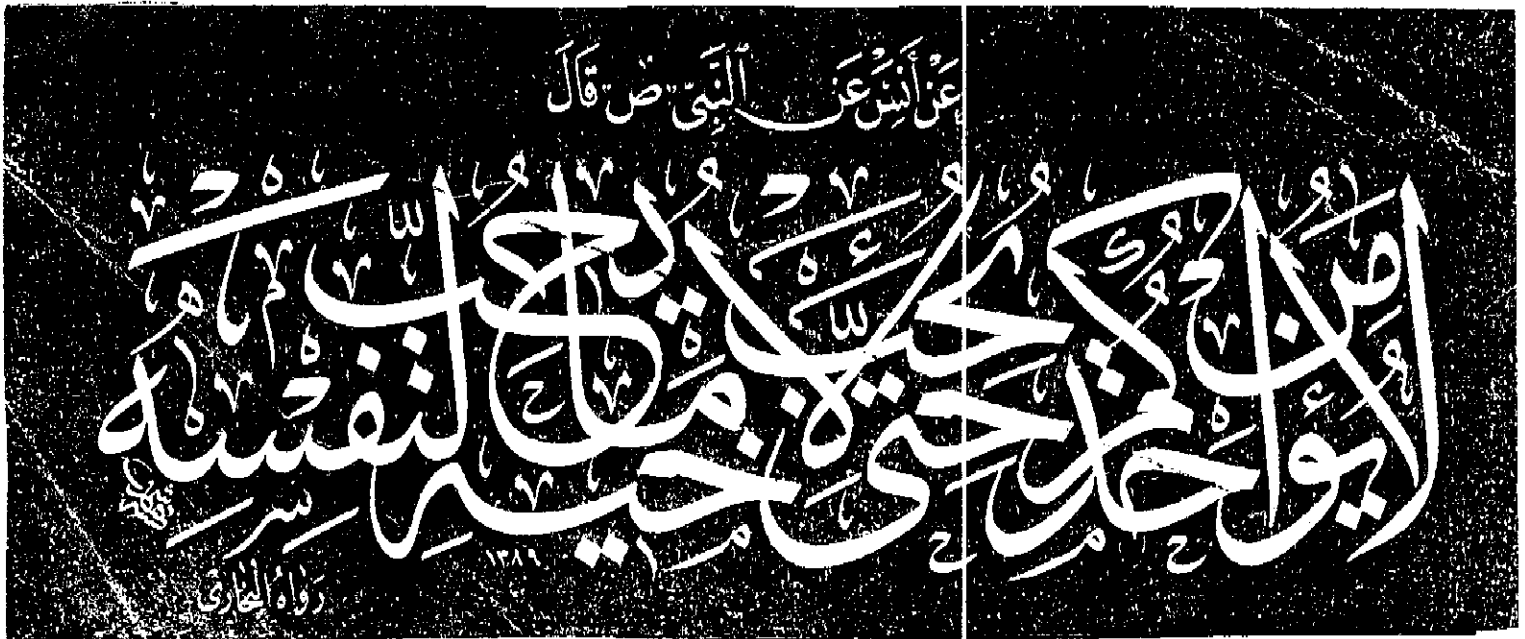 عَنْ أَنَسْ عَنِ ٱلنَّبِيِّ ص قَالَ
لَا يُؤْمِنُ أَحَدُكُمْ حَتَّى يُحِبَّ لِأَخِيهِ مَا يُحِبُّ لِنَفْسِهِ
١٣٨٩
رَوَاهُ الْبُخَارِى